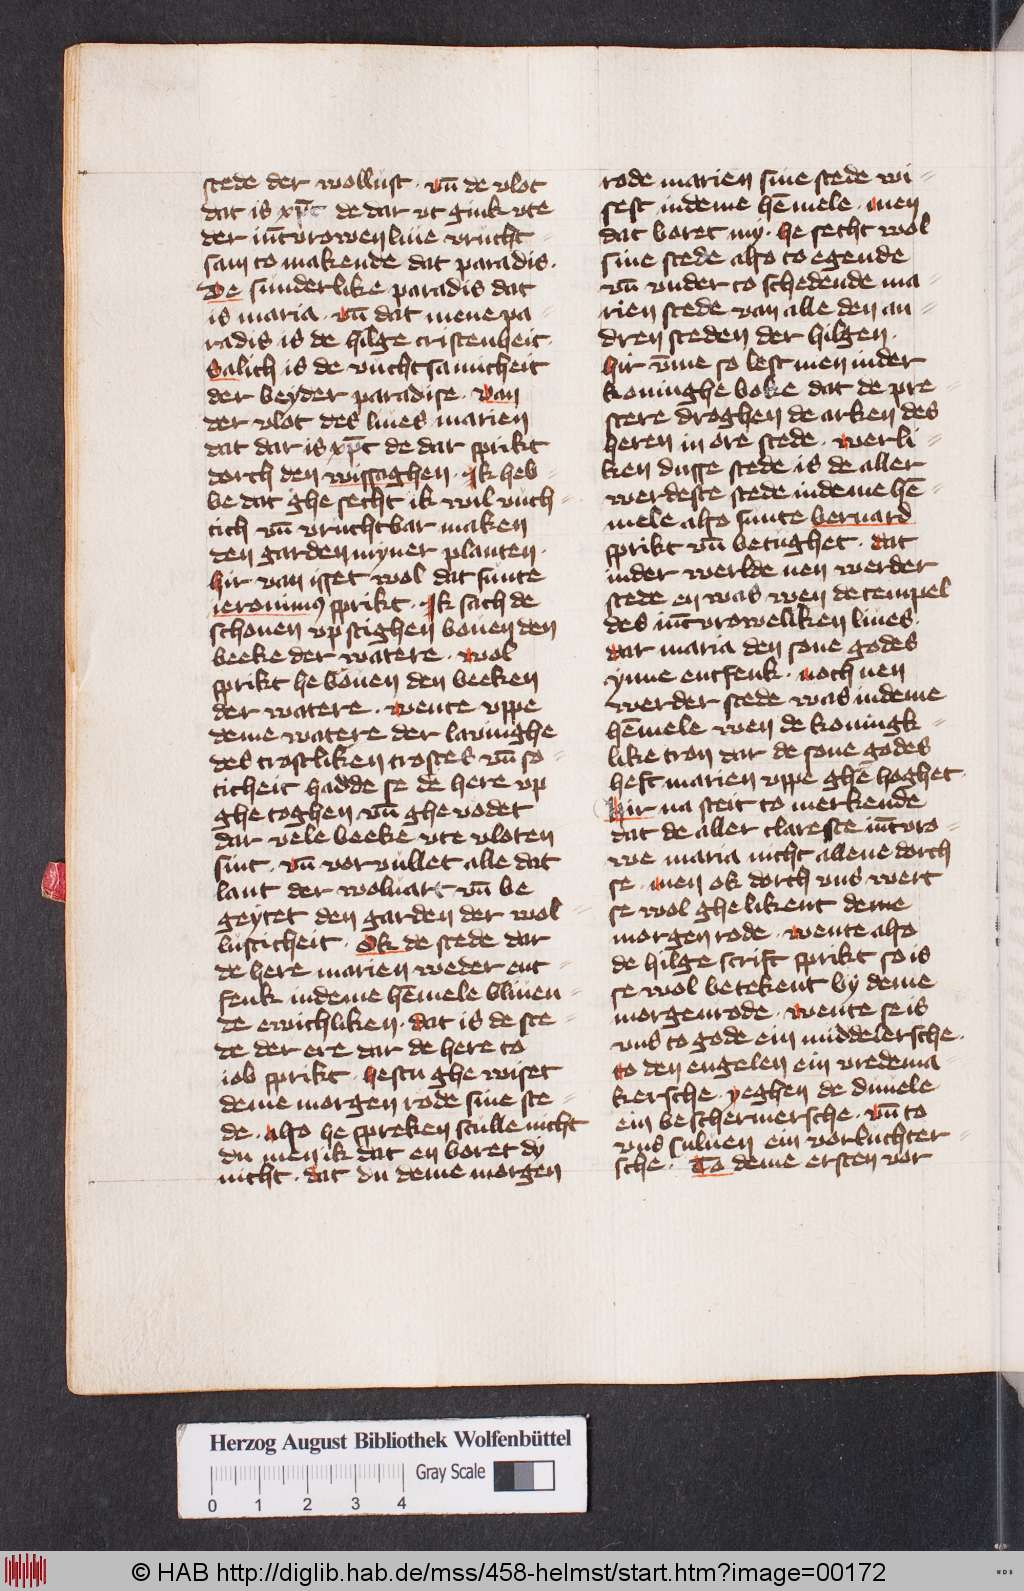 stede der wollust · vn̄ de vlot
dat is xp̄c de dar vt gink vte
der iūcvrowen liue vrucht =
sam to makende dat paradis ·
De sunderlike paradis dat
is maria · vn̄ dat mene pa =
radis is de hilge cristenheit ·
Salich is de vuchtsamicheit
der beyder paradise · van
der vlot des liues marien
dat dar is xp̄c de dar sprikt
dorch den wissaghen · Ik heb =
be dat ghe secht ik wil vuch =
tich vn̄ vruchtbar maken
den garden myner planten ·
hir van isset wol dat sunte
ieronimus sprikt · Ik sach de
schonen vp stighen bouen den
beeke der watere · wol
sprikt he bouen den beeken
der watere · wente vppe
deme watere der lauinghe
des trostliken trostes vn̄ so =
ticheit hadde se de here vp
ghe toghen vn̄ ghe vodet
dar vele beeke vte vloten
sint · vn̄ vor vullet alle dat
lant der wolnart vn̄ be
geytet den garden der wol =
lusticheit · Ok de stede dar
de here marien weder ent =
fenk indeme hēmele bliuen =
de ewichliken · dat is de ste =
de der ere dar de here to
iob sprikt · hestu ghe wiset
deme morgen rode sine ste =
de · also he spreken sculle nicht
du men ik dat en boret dy
nicht · dat du deme morgen
rode marien sine stede wi =
sest indeme hēmele · men
dat boret my · he secht wol
sine stede also to egende
vn̄ vnder to schedende ma =
rien stede van alle den an =
dren steden der hilgen ·
hir vm̄e so lest men inder
koninghe boke dat de pre =
stere droghen de arken des
heren in ore stede · werli =
ken dusse stede is de aller
werdeste stede indeme hē =
mele also sunte bernard
sprikt vn̄ betughet · dat
inder werlde nen werder
stede en was wen de tempel
des iūcvroweliken liues ·
dar maria den sone godes
ynne entfenk · noch nen
werder stede was indeme
hēmele wen de koningk =
like tron dar de sone godes
heft marien vppe ghe hoghet ·
Hir na steit to merkende
dat de aller clareste iūcvro =
we maria nicht allene dorch
se · men ok dorch vns wert
se wol ghe likent deme
morgen rode · wente also
de hilge scrift sprikt so is
se wol betekent by deme
morgenrode · wente se is
vns to gode ein middelersche ·
to den engelen ein vredema =
kersche · yeghen de duuele
ein beschermersche · vn̄ to
vns suluen ein vorluchter =
sche · To deme ersten vor
Herzog August Bibliothek Wolfenbüttel
Gray Scale
0 1 2 3 4
© HAB http://diglib.hab.de/mss/458-helmst/start.htm?image=00172